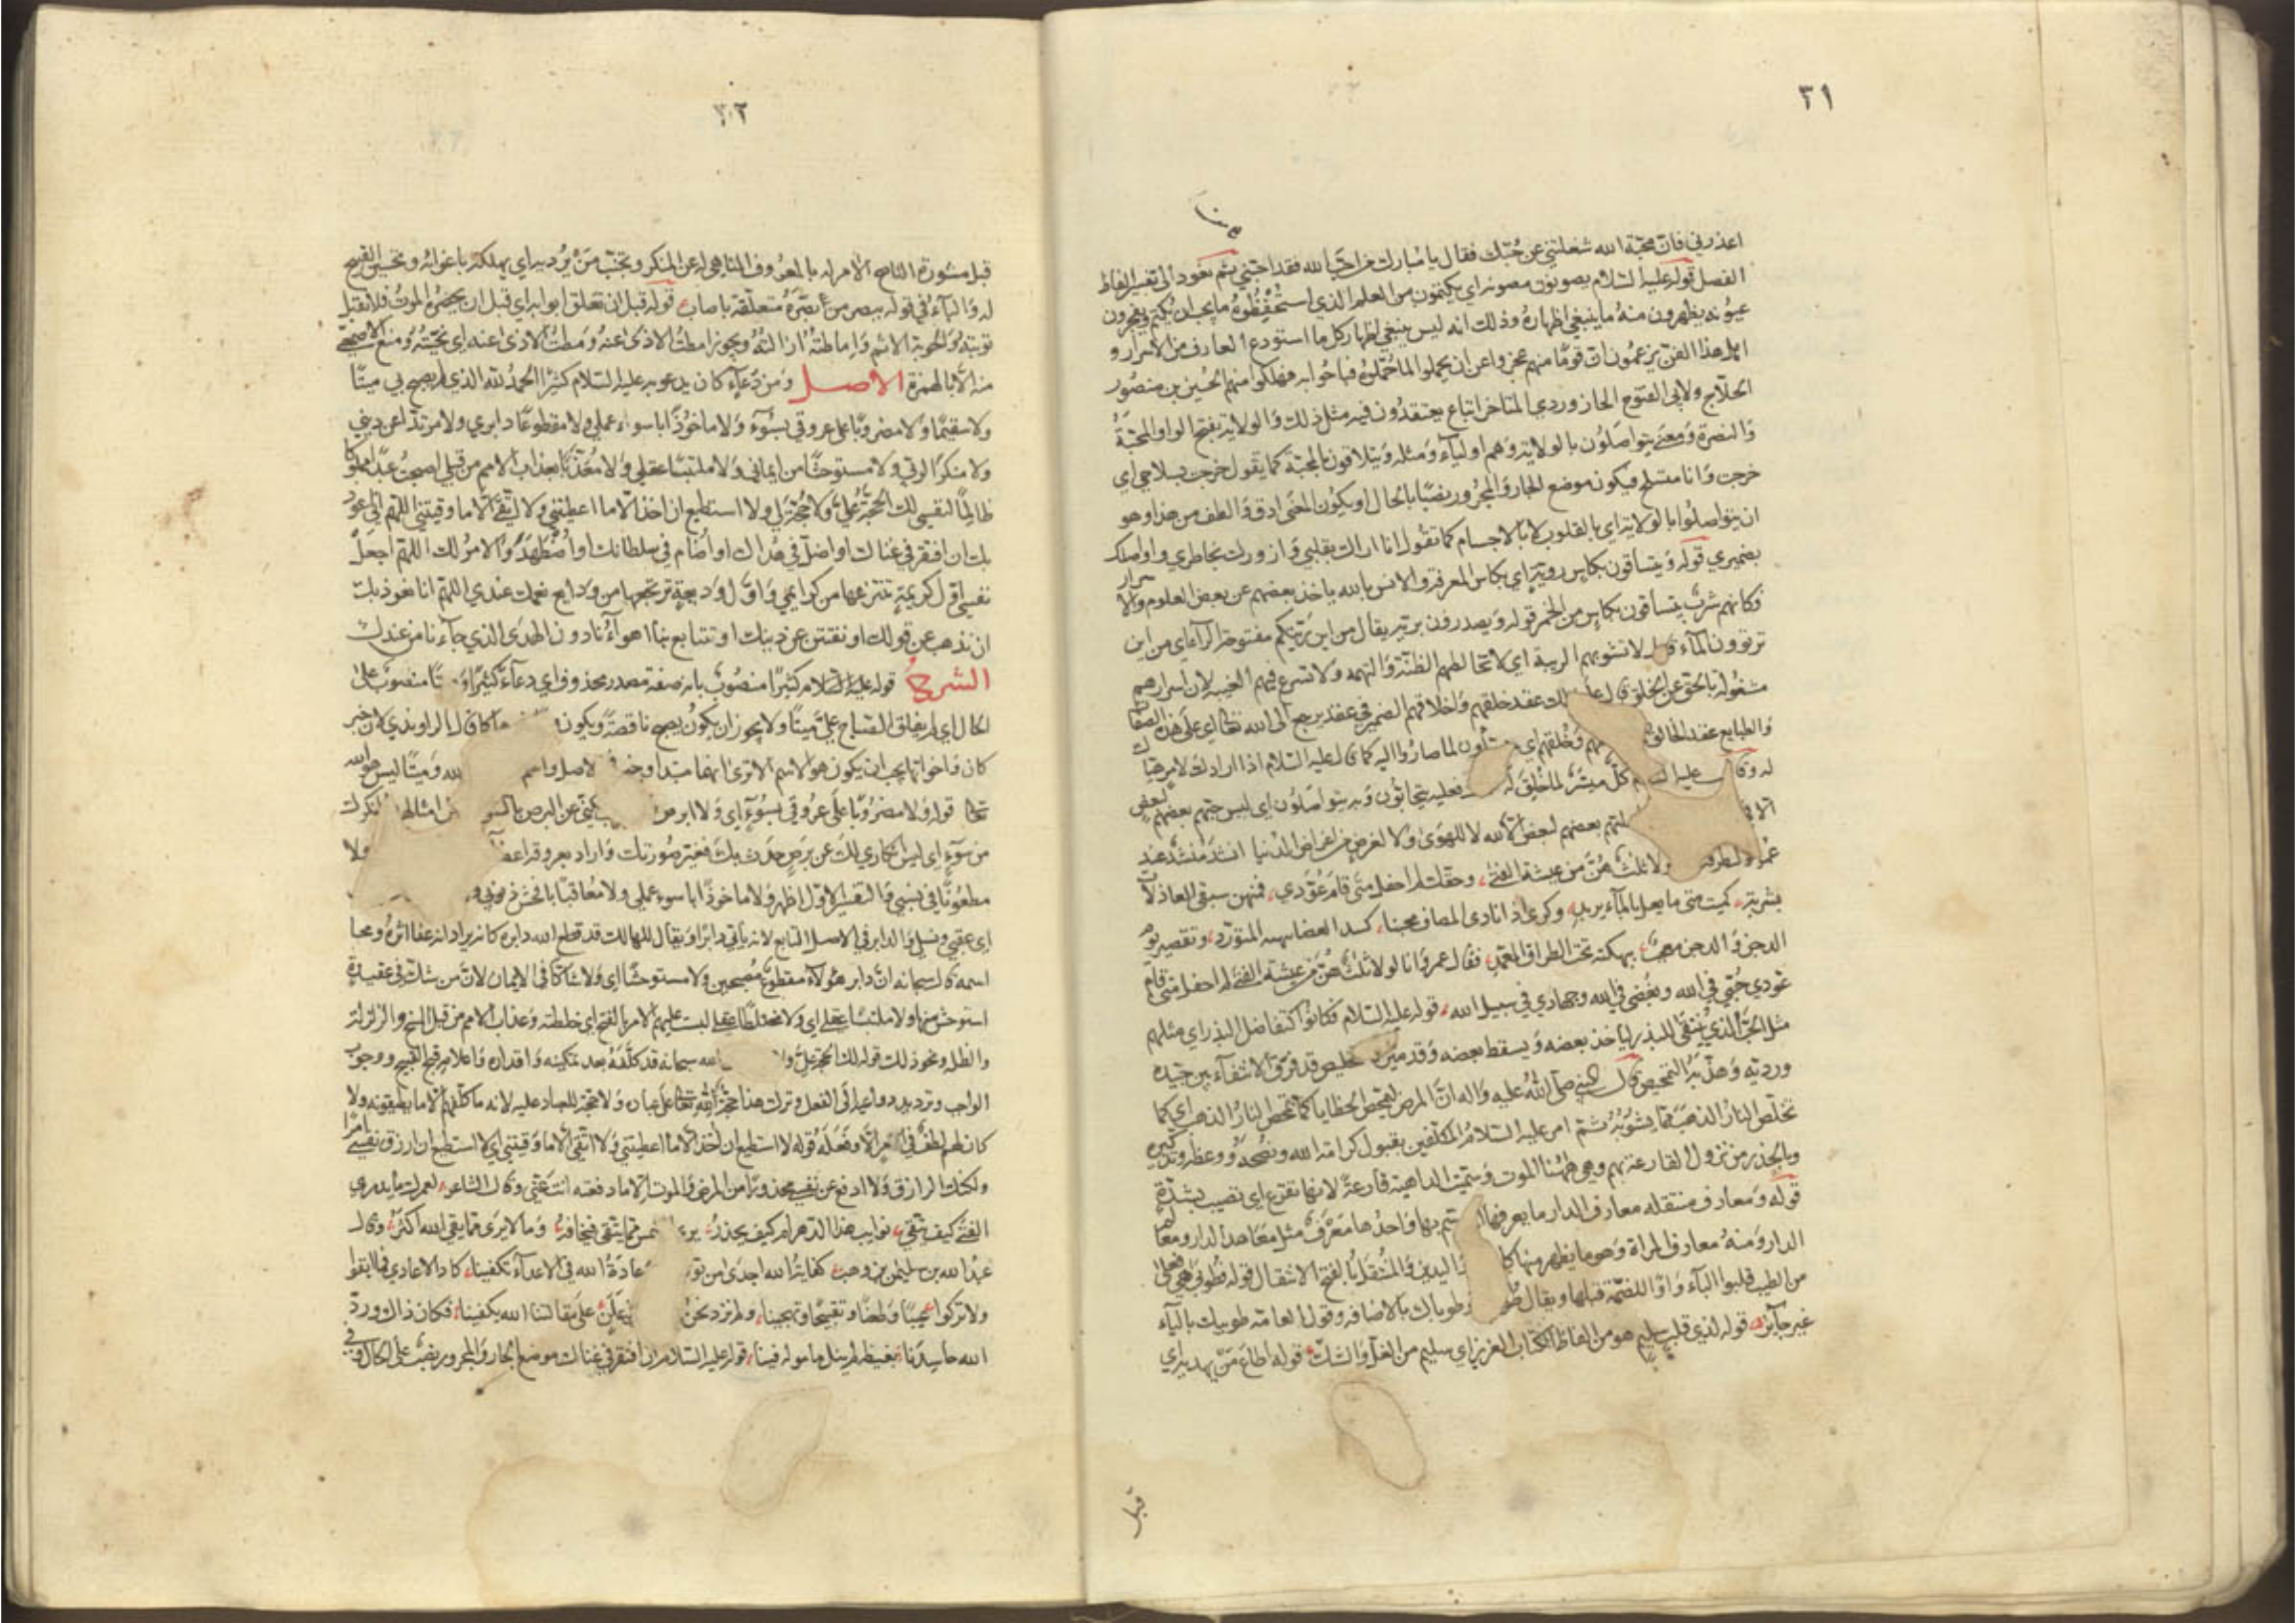 ٣١
اعذرني فان محبّة الله شغلتني عن حُبّك فقال يا مبارك من احبّ الله فقد احبّني ثم نعود الى تفسير الفاظ
الفصل قوله عليه السّلام يصونون مصونه اي يكتمون من العلم الذي استُحفِظُوهُ ما يجب ان يُكتم ويفجّرون
عيونه يظهرون منهُ ما ينبغي اظهارهُ وذلك انه ليس ينبغي اظهار كل ما استودع العارف من الاسرار و
اهل هذا الفن يزعمُون ان قومًا منهم عجزوا عن ان يحملوا ما حُمّلوهُ فباحُوا به فهلكوا منهم الحُسين بن منصُور
الحلّاج ولابي الفتوح الجاروردي المتاخر اتباع يعتقدُون فيه مثل ذلك وَالولاية بفتح الواو المحبّةُ
وَالنصرة وَمعنَى يتواصَلُون بالولاية وَهم اوليآء وَمثله وَيتلاقون بالمحبّة كما يقول خرجت بسلاحي اي
خرجت وَانا متسلح فيكون موضع الجار وَالمجرُور نصبًا بالحال او يكُون المعنَى ادق وَالطف من هذا وهو
ان يتواصلُوا بالولاية اي بالقلوب لا بالاجسام كما تقُول انا اراك بقلبي وَازورك بخاطري واواصلك
بضميري قوله وَيتساقون بكاسٍ رويّةٍ اي بكاس المعرفة والانس بالله ياخذ بعضهم عن بعض العلوم والاسرار
فكانهم شربٌ يتساقون بكاسٍ من الخمر قوله وَيصدرون بريّه يقال من اين رَيّتكم مفتوحة الرآء اي من اين
ترتوون المآء لا تشوبهم الريبة اي لا تخالطهم الظنّة وَالتهمه ولا تسرع فيهم الغيبه لان اسرارهم
مشغولة بالحق عن الخلق عقد خلقهم وَاخلاقهم الضمير في عقد يرجع الى الله تعالى اي على هذه الصفات
وَالطبايع عقد الخالق وَخُلقهم اي لما صاروا اليه كما قال عليه السّلام اذا ارادك لامرٍ هيّاك
له عليه كلّ ميسّرٌ لما خُلق له فعليه يتحابّون وَبه يتواصَلُون اي ليس حبّهم بعضهم لبعض
بعضهم لبعض الّا لله لا للهوى ولا لغرض من اغراض الدنيا انشد منشد عند
عمر ولا ثلثٌ هُنّ من عيشة الفتى وحقّك لم احفل متى قام عوّدي فمنهن سبقي العاذلات
بشربة كميت متى ما يعل بالمآء يزبد وكرّي اذا نادى المضاف محبنا كسيد العضا المتورّد وتقصير يوم
الدجن وَالدجن معجب ببهكنة تحت الطراف المعمد فقال عمر وَانا لولا ثلاثٌ هُنّ من عيشة الفتى لم احفل متى قام
عوّدي حُبّي في الله وبغضي في الله وجهادي في سبيل الله قوله عليه السّلام فكانوا كتفاضل البذر اي مثلهم
مثل الحبّ الذي يُنتقى للبذر ياخذ بعضه وَيسقط بعضه وَقد ميّزه خليص قد فرّق الانتقآء بين جيّده
ورديّه وَهذّبهُ التمحيص قال النبي صلّى اللهُ عليه وَاله انّ المرض ليمحّص الخطايا كما تمحص النارُ الذهب اي كما
تخلّص النارُ الذهب ممّا يشُوبُهُ ثم امر عليه السّلام المكلّفين بقبول كرامة الله ونصحه ووعظه وتذكيره
وبالحذر من نزول القارعة بهم وهي ههُنا الموت وَسُمّيت الداهية قارعةً لانها تقرع اي تصيب بشدّة
قوله وَمعارف منتقله معارف الدار ما يعرفها المتوسّم بها وَاحدُها مَعْرَفٌ مثل مَعَاهد الدار ومعالمها
الدار وَمنهُ معارف المراة وَهو ما يظهر منها كالوجه وَاليدين وَالمُنتقَلُ بالفتح الانتقال قوله فطُوبى هي فُعلى
من الطيب قلبوا اليآء وَاوًا للضمّة قبلها ويقال طوبى لك وطوباك بالاضافه وقول العامّة طوبيك باليآء
غير جآئز قوله لذي قلبٍ سليم هو من الفاظ الكتاب العزيز اي سليم من الغلّ وَالشكّ قوله اطاع مَنْ يهديه اي
قبل
٣٢
قبل مشورة الناصح الآمر له بالمعروف الناهي له عن المنكر وتجنّب مَنْ يُرديه اي يهلكه باغوائه وتحسين القبيح
له وَالبآءُ في قوله ببصر من بصّرهُ متعلّقة باصاب قوله قبل ان تغلق ابوابه اي قبل ان يحضرهُ الموتُ فلا تقبل
توبته وَالحوبة الاثم وَاماطتهُ ازالتهُ ويجوز امطتُ الاذى عنه وَمِطتُ الاذى عنه اي نحّيتُهُ وَمنع الاصمعي
منه الّا بالهمزة الاصل وَمن دُعآءٍ كان يدعو به عليه السّلام كثيرًا الحمدُ لله الذي لم يصبح بي ميتًا
ولا سقيمًا وَلا مضروبًا على عروقي بسُوٓءٍ وَلا ماخوُذًا باسوأ عملي ولا مقطوعًا دابري ولا مرتدًا عن ديني
ولا منكرًا لربّي ولا مستوحشًا من ايماني وَلا ملتبسًا عقلي وَلا مُعَذّبًا بعذاب الامم من قبلي اصبحتُ عبدًا مملوكًا
ظالمًا لنفسي لك الحُجّةُ عليّ وَلا حُجّةَ لي ولا استطيع ان اخذ الّا ما اعطيتني وَلا اتّقي الّا ما وقيتني اللهم اني اعوذ
بك ان افتقر في غناك او اضلّ في هُداك او اُضام في سلطانك او اُضطهَدَ وَالامرُ لك اللهمّ اجعَل
نفسي اوّل كريمةٍ تنتزعها من كرايمي وَاوّل وَديعةٍ ترتجعها من ودايع نعمك عندي اللهمّ انا نعوذ بك
ان نذهب عن قولك او نفتتن عن دينك او تتتابع بنا اهوآءُنا دون الهدَى الذي جآء نا من عندك
الشرح قوله عليه السّلام كثيرًا منصُوبٌ بانه صفة مصدر محذوف اي دعآءً كثيرًا منصُوبٌ على
الحال اي لم يفلق الصّباح عليّ ميتًا ولا يجوز ان يكُون يصبح ناقصةً ويكون كما قال الراوندي لان خبر
كان وَاخواتها يجب ان يكون هو الاسم الا ترى انهما مبتدا وخبر في الاصل واسم الله وَميتًا ليس هو الله
تعالى قوله وَلا مضروبًا على عرُوقي بسُوٓءٍ اي وَلا ابرص يكنّي عن البرص بالسوء امثالهم
من سوٓءٍ اي ليس انكاري لك عن برَصٍ حدَث بك فغيّر صُورتك وَاراد بعروقه اعضآءه ولا
مطعُونًا في نسبي وَالتفسير الاوّل اظهر وَلا ماخوذًا باسوء عملي ولا مُعاقبًا بافحش ذنوبي
اي عقبي ونسلي وَالدابر في الاصل التابع لانه ياتي دابرًا وَيقال للهالك قد قطع الله دابره كانه يراد انه عفا اثرهُ ومحا
اسمه قال سبحانه انّ دابر هؤلآء مقطوعٌ مُصبحين ولا مستوحشًا اي وَلا شاكًا في الايمان لانّ من شكّ في عقيدةٍ
استوحش منها ولا ملتبسًا عقلي اي وَلا مختلطًا عقلي لبست عليهم الامر بالفتح اي خلطته وَعذاب الامم من قبل المسخ والزلزلة
والظلمة ونحو ذلك قوله لك الحجّة عليّ ولا الله سبحانه قد كلّفهُ بعد تمكينه وَاقداره وَاعلامه قبح القبيح ووجوب
الواجب وترديد دواعيه الى الفعل وتركه هذه حجّةُ اللهِ تعالى على عباده وَلا حجّة للعباد عليه لانه ما كلّفهم الّا ما يطيقونه ولا
كان لهم لطفٌ في امرٍ الّا وفَعَلَهُ قوله لا استطيع ان آخذ الّا ما اعطيتني وَلا اتّقي الّا ما وَقيتني اي لا استطيع ان ارزق نفسي امرًا
ولكنك الرازق وَلا ادفع عن نفسي محذورًا من المرض وَالموت الّا ما دفعته انت عنّي وَقال الشاعر لعمرك ما يدري
الفتَى كيف يتّقي نوايب هذا الدّهر ام كيف يحذرُ يرى ممّا يتّقي فيخافهُ وَما لا يرَى ممّا يقي الله اكثرُ وقال
عبدُ الله بن سليمن بن وهب كفايةُ الله اجدى من عادةُ الله في الاعدآء تكفينا كاد الاعادي فلا ابقوا
ولا تركوا عيبًا وَطعنًا وتقبيحًا وتهجينا ولم نزد نحن علَنٍ على مقالتنا الله يكفينا فكان ذاك وردّ
الله حاسدَنا بغيظه لم ينل مامولَهُ فينا قوله عليه السّلام ان افتقر في غناك موضع الجار وَالمجرور نصبٌ على الحال وفي